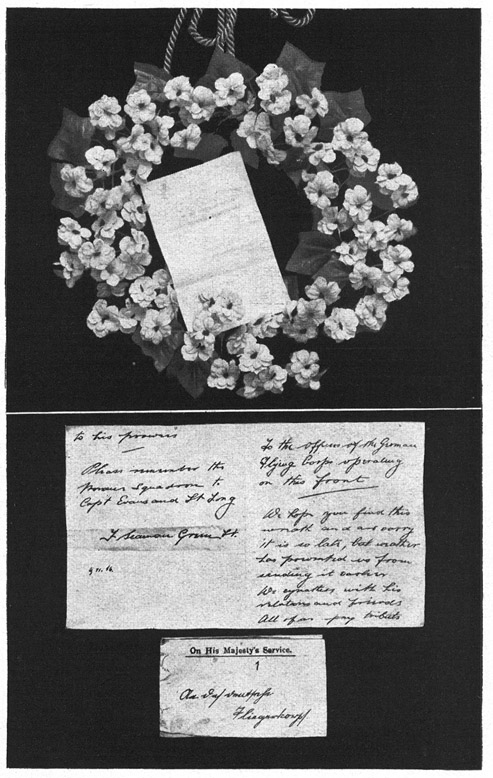 To the officers of the German
Flying Corps operating
on this front
We hope you find this
wreath and are sorry
it is so late, but weather
has prevented us from
sending it earlier
We sympathise with his
relations and friends
All of us pay tribute
to his prowess
Please remember the
Morane Squadron to
Capt Evans and Lt Long
T Seaman Green Lt.
9.11.16.
On His Majesty's Service.
1
An das deutsche
Fliegerkorps